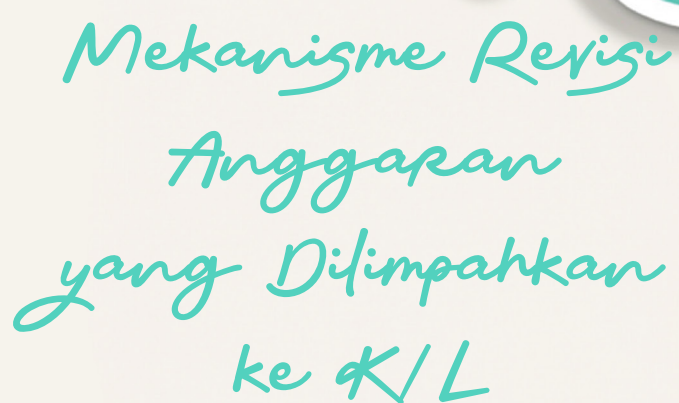 Mekanisme Revisi
Anggaran
yang Dilimpahkan
ke K/L